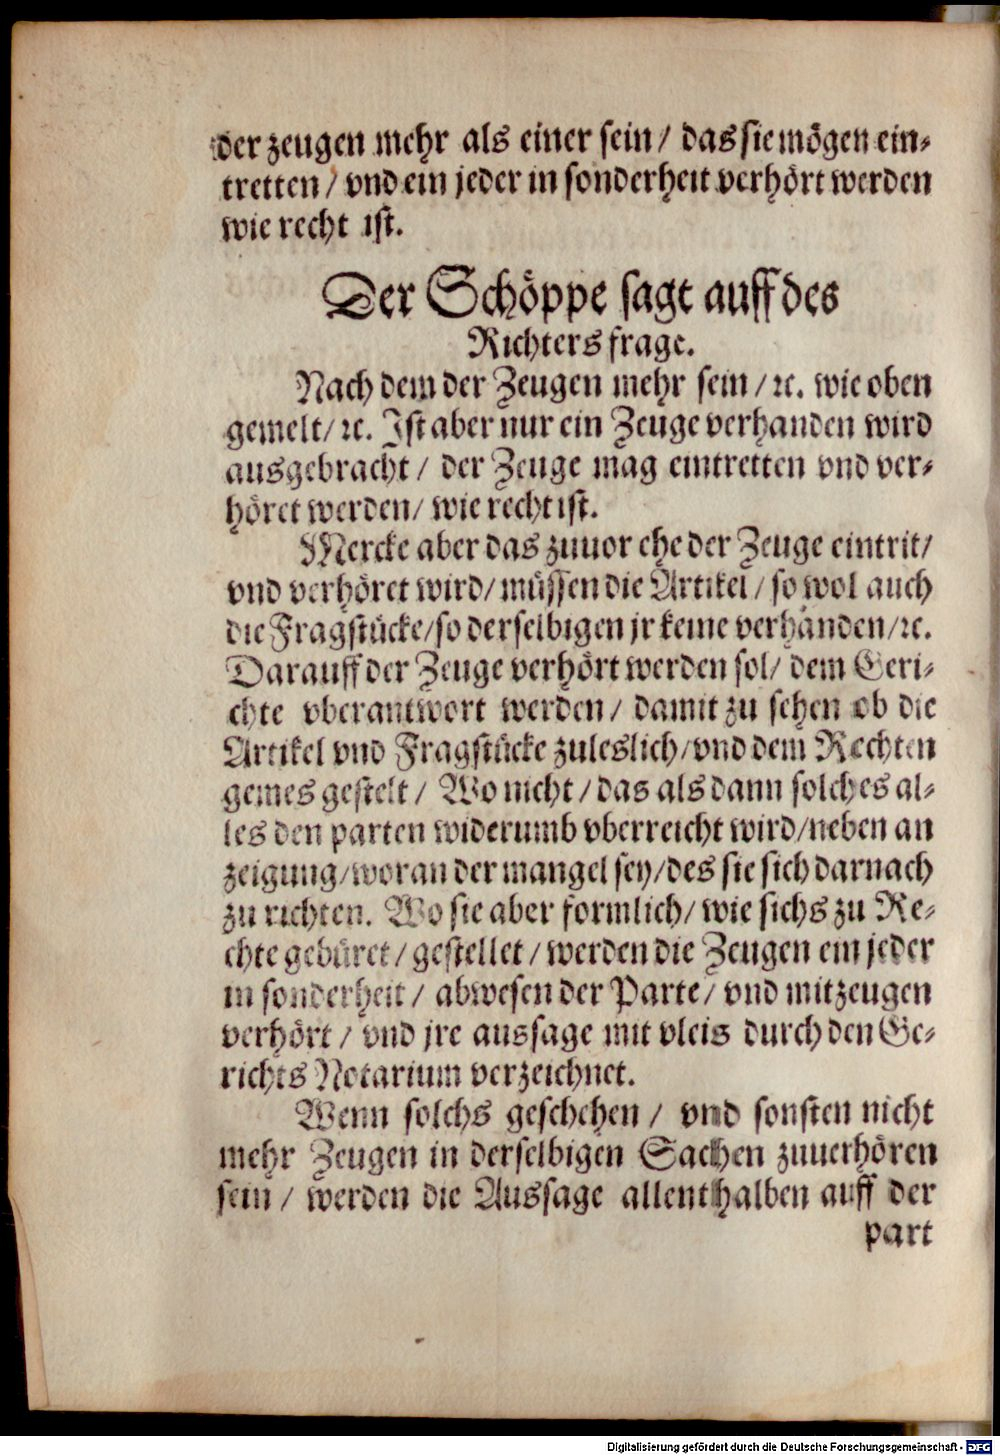 der zeugen mehr als einer sein / das sie mögen ein⸗
tretten / vnd ein jeder in sonderheit verhört werden
wie recht ist.
Der Schöppe sagt auff des
Richters frage.
Nach dem der Zeugen mehr sein / ꝛc. wie oben
gemelt / ꝛc. Ist aber nur ein Zeuge verhanden wird
ausgebracht / der Zeuge mag eintretten vnd ver⸗
höret werden / wie recht ist.
Mercke aber das zuuor ehe der Zeuge eintrit /
vnd verhöret wird / müssen die Artikel / so wol auch
die Fragstücke / so derselbigen jr keine verhanden / ꝛc.
Darauff der Zeuge verhört werden sol / dem Geri⸗
chte vberantwort werden / damit zu sehen ob die
Artikel vnd Fragstücke zuleslich / vnd dem Rechten
gemes gestelt / Wo nicht / das als dann solches al⸗
les den parten widerumb vberreicht wird / neben an
zeigung / woran der mangel sey / des sie sich darnach
zu richten. Wo sie aber formlich / wie sichs zu Re⸗
chte gebüret / gestellet / werden die Zeugen ein jeder
in sonderheit / abwesen der Parte / vnd mitzeugen
verhört / vnd jre aussage mit vleis durch den Ge⸗
richts Notarium verzeichnet.
Wenn solchs geschehen / vnd sonsten nicht
mehr Zeugen in derselbigen Sachen zuuerhören
sein / werden die Aussage allenthalben auff der
part
Digitalisierung gefördert durch die Deutsche Forschungsgemeinschaft - DFG